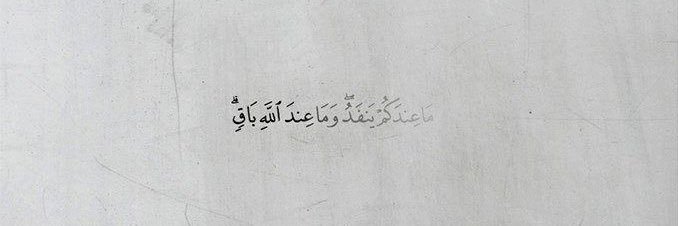 مَا عِندَكُمۡ يَنفَدُ وَمَا عِندَ ٱللَّهِ بَاقٖۗ